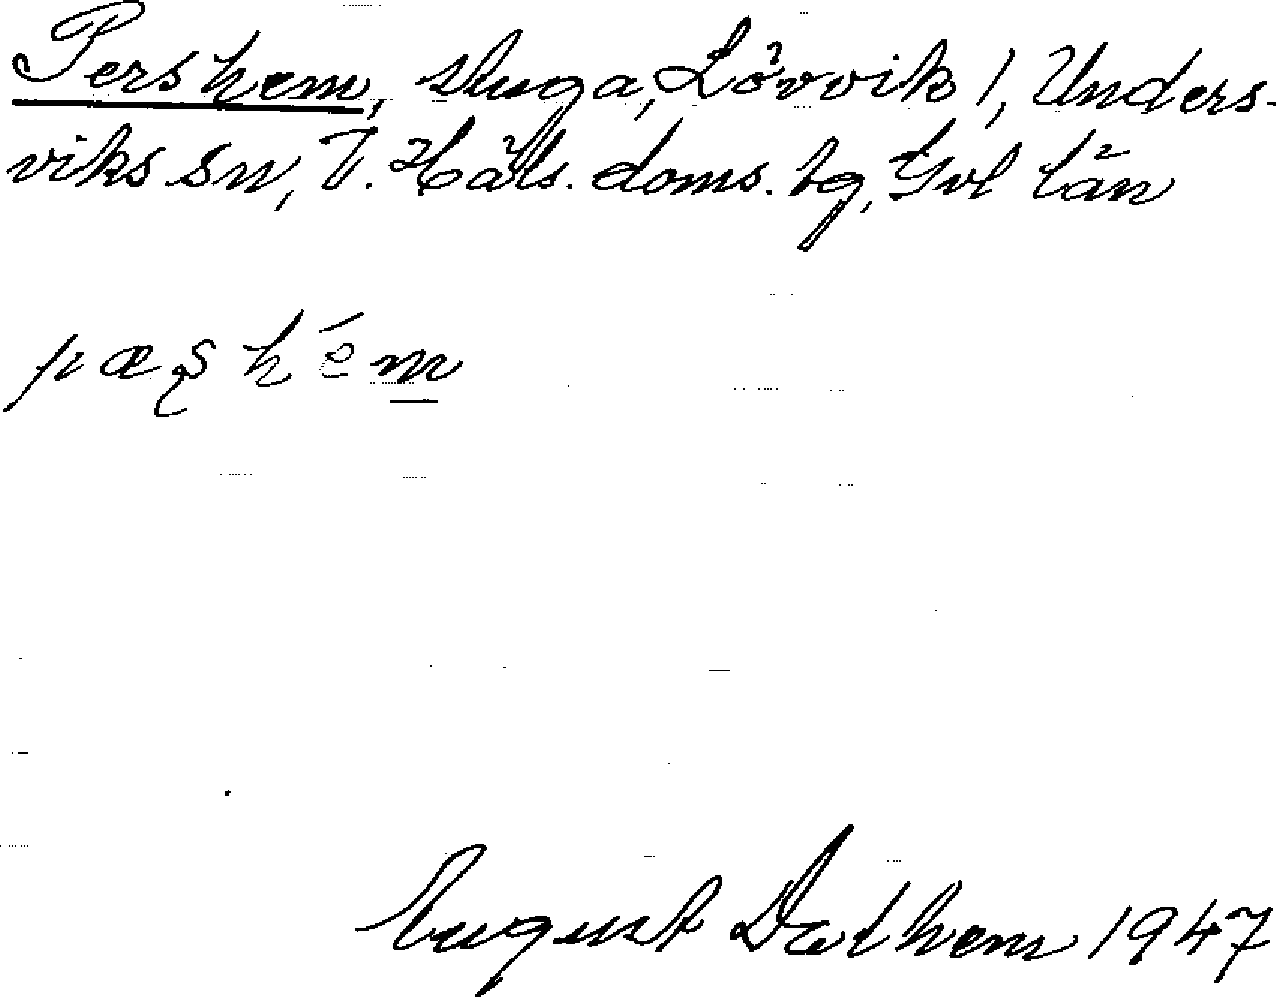 Pershem, stuga, Lövvik 1, Unders-
viks sn, V. Häls. doms. hg, Gvl län
pæʂhém
August Dathem 1947